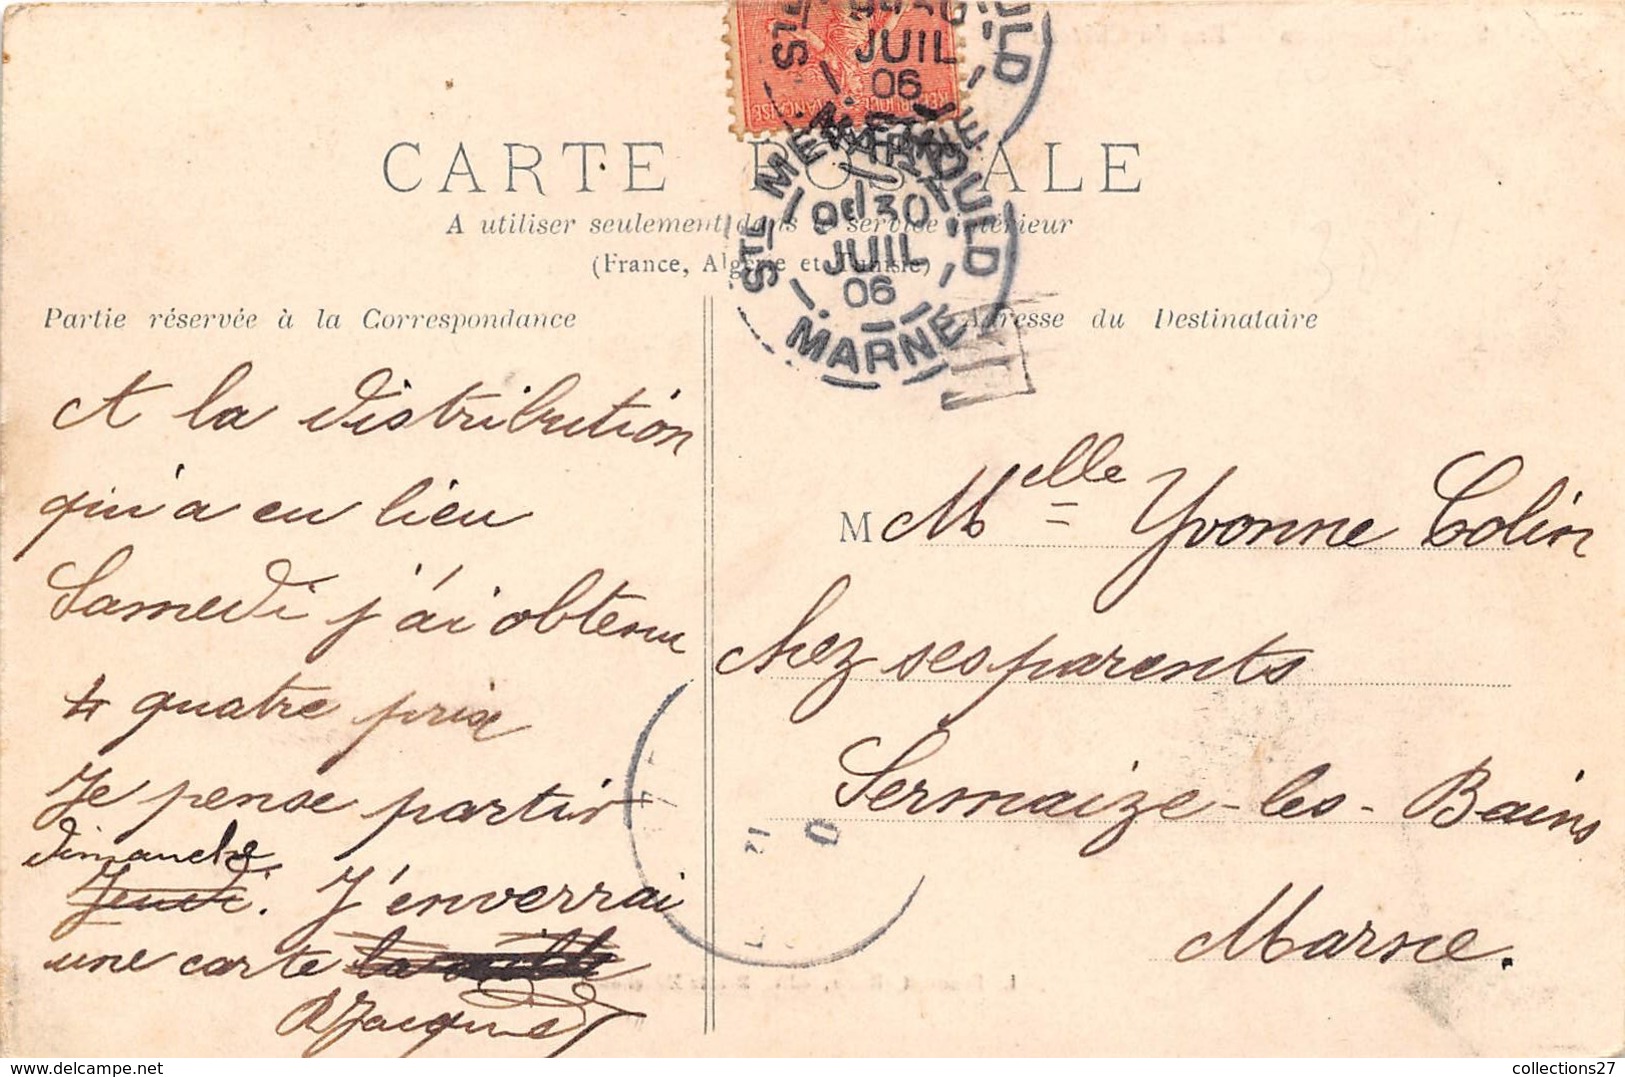 CARTE POSTALE
A utiliser seulement dans le service intérieur
(France, Algérie et Tunisie)
Partie réservée à la Correspondance
A la distribution
qui a eu lieu
Samedi j'ai obtenu
4 quatre prix
Je pense partir
Dimanche
Jeudi. J'enverrai
une carte la
Jacques
Adresse du Destinataire
M Melle Yvonne Colin
chez ses parents
Sermaize-les-Bains
Marne.
REPUBLIQUE FRANÇAISE
JUIL
06
STE MENEHOULD
9E 30
JUIL
06
MARNE
collections27